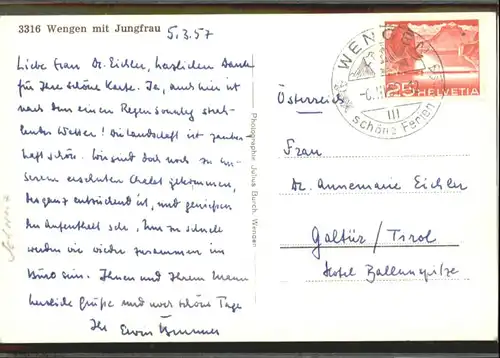 3316 Wengen mit Jungfrau
5.3.57
Liebe Frau Dr. Eichler, herzlichen Dank
für Ihre schöne Karte. Ja, auch hier ist
nach dem einen Regensonntag strah-
lendes Wetter! Die Landschaft ist zauber-
haft schön. Wir sind doch noch zu un-
serem ersehnten Chalet gekommen,
das ganz entzückend ist, und geniessen
den Aufenthalt sehr. Nur zu schnell
werden wir wieder zusammen im
Büro sein. Ihnen und Ihrem Mann
herzliche Grüße und noch schöne Tage
Ihr Erwin
Photographie Julius Burch, Wengen
WENGEN
schöne Ferien
25 HELVETIA
Österreich
Frau
Dr. Annemarie Eichler
Galtür / Tirol
Hotel Ballunspitze